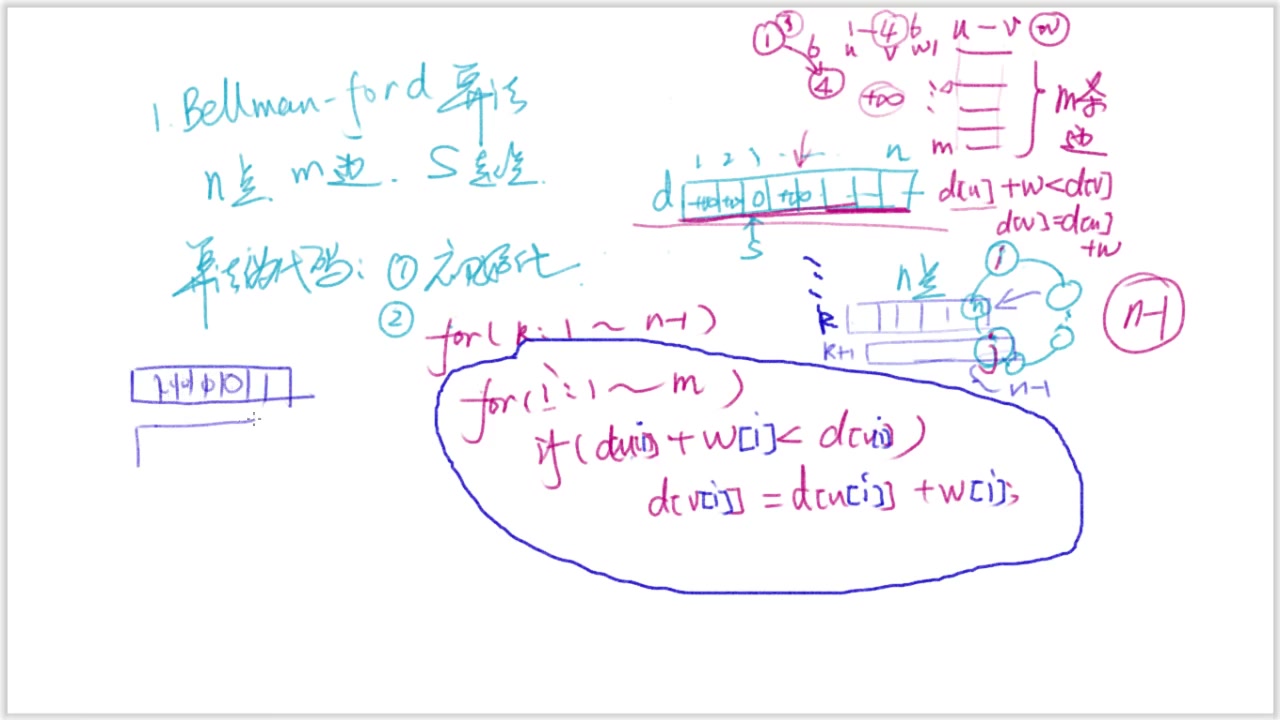 1. Bellman-ford 算法
n点 m边. S起点.
算法的代码: ① 初始化
② for( k: 1 ~ n-1 )
for( i: 1 ~ m )
if( d[u[i]] + w[i] < d[v[i]] )
d[v[i]] = d[u[i]] + w[i];
① 3
6
④
1-④ 6
u v w1
u - v w
+∞
m
m条
边
1 2 3 n
d +∞ +∞ 0 +∞
S
d[u] + w < d[v]
d[v] = d[u]
+w
n点
1
n
k
k+1
j
n-1
n-1